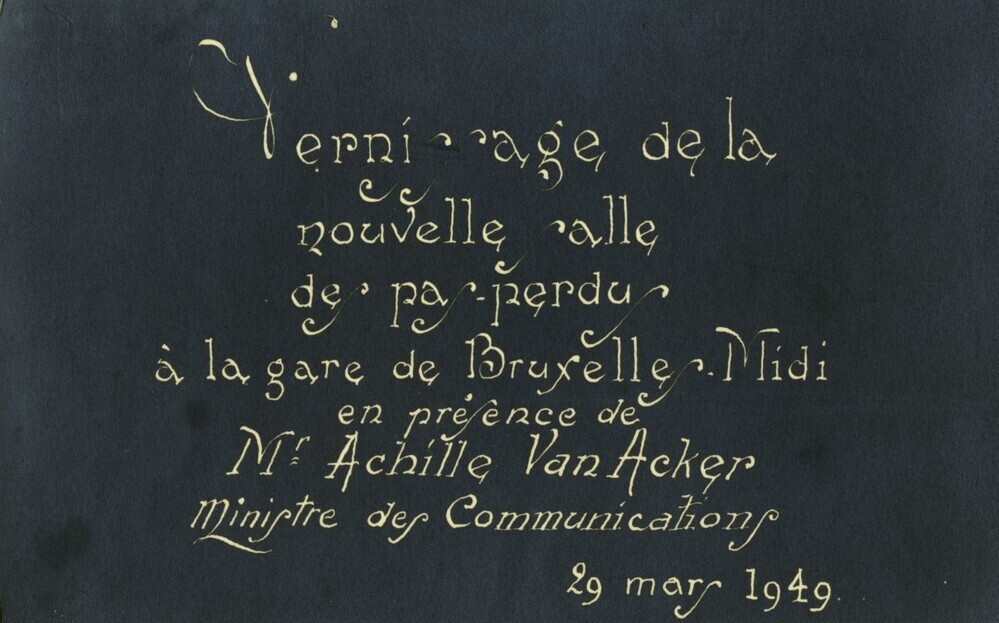 Vernissage de la
nouvelle salle
des pas-perdus
à la gare de Bruxelles-Midi
en présence de
Mr Achille Van Acker
Ministre des Communications
29 mars 1949.